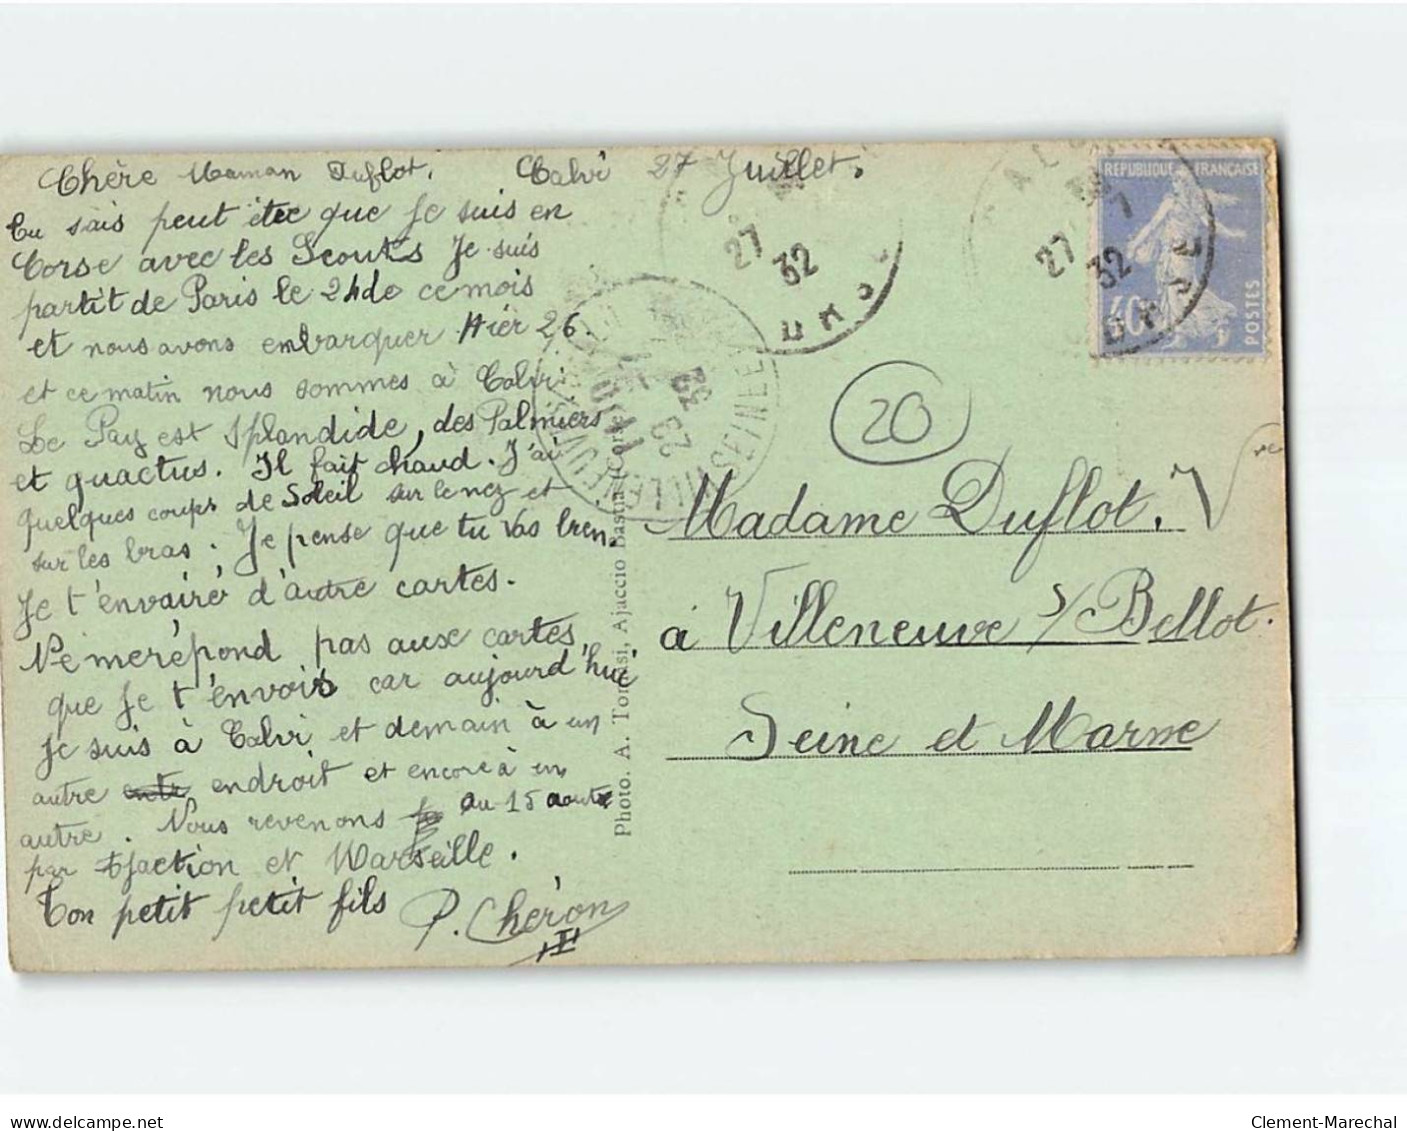 Chère Maman Duflot. Calvi 27 Juillet.
Tu sais peut être que Je suis en
Corse avec les Scouts Je suis
partit de Paris le 24 de ce mois
et nous avons embarquer Hier 26.
et ce matin nous sommes à Calvi.
Le Pay est Splandide, des Palmiers
et quactus. Il fait chaud. J'ai
quelques coups de Soleil sur le nez et
sur les bras. Je pense que tu vas bien.
Je t'envairé d'autre cartes.
Ne me répond pas aux cartes
que Je t'envois car aujourd'hui
Je suis à Calvi et demain à un
autre endroit et encore à un
autre. Nous revenons au 15 aout
par Ajaction et Marseille.
Ton petit petit fils P. Chéron
Photo. A. Tomasi, Ajaccio Bastia (Corse)
27 32
27 7 32
REPUBLIQUE FRANÇAISE
40
POSTES
20
Madame Duflot. Vve
à Villeneuve s/Bellot.
Seine et Marne
www.delcampe.net
Clement-Marechal